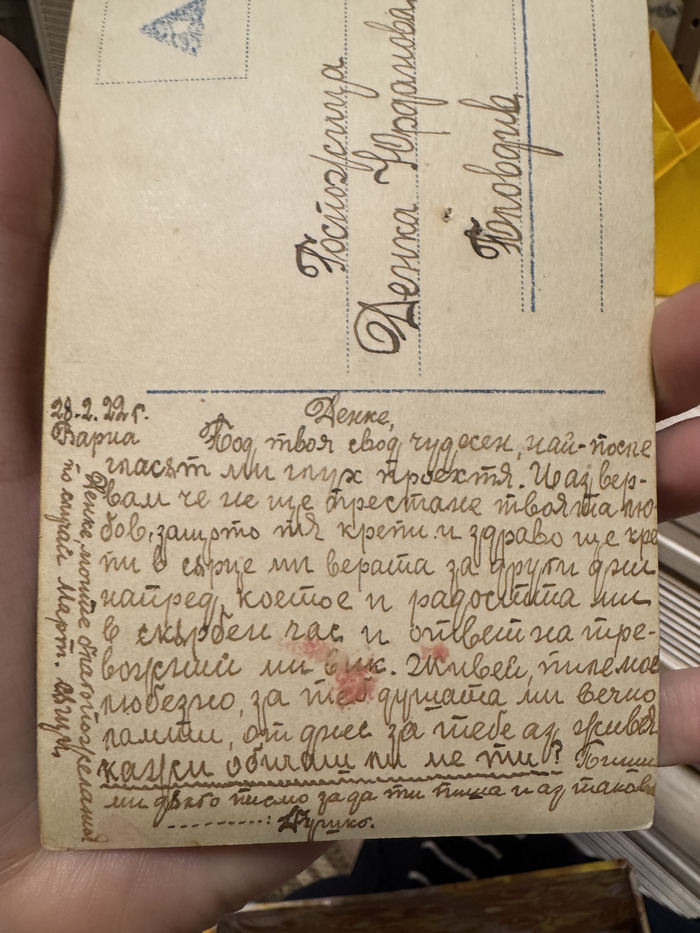 Госпожица
Денка Юрданова
Пловдив
28.2.22 г.
Варна
Денке,
Под твоя свод чудесен, най-после
гласят ми глух проектя. И аз вер-
вам че не ще престане твоята лю-
бов, защото тя крепи и здраво ще кре
пи в сърце ми верата за други дни
напред, което е и радостта ми
в скърбен час и ответ на тре-
вожний ми вик. Живей, пиле мое
любезно, за теб душата ми вечно
ламти, от днес за тебе аз живея
кажи обичаш ли ме ти? Пиши
ми дълго писмо за да ти пиша и аз такова
Душко.
Денке, моите благопожелания
по случай Март.